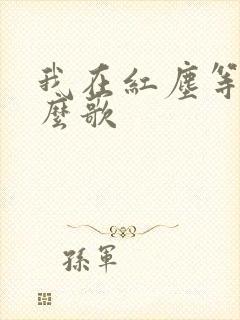 我在紅塵等
麼歌
孫軍